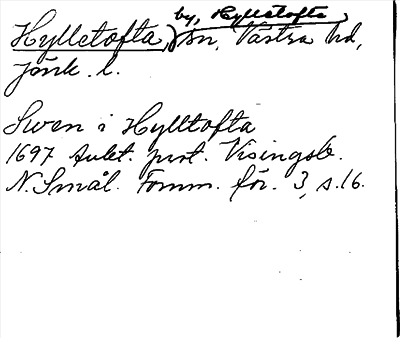 by, Hylletofta
Hylletofta, sn, Västra hd,
Jönk. l.
Swen i Hylltofta
1697 Aukt. prot. Visingsb.
N. Smål. Fornm. för. 3, s. 16.